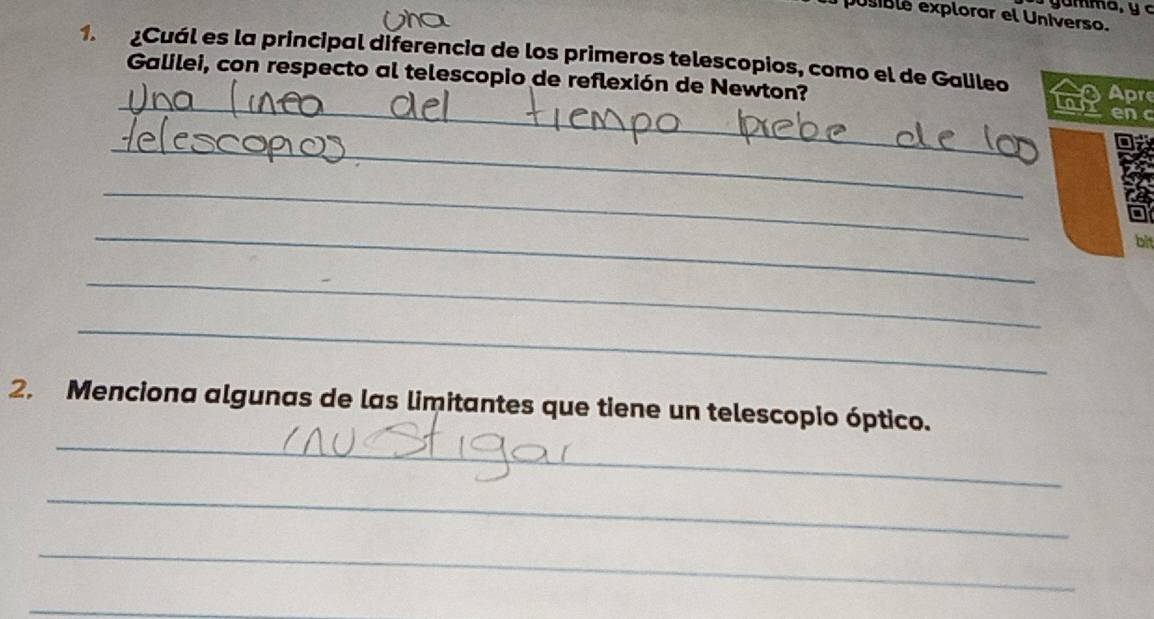 gamma, y
posible explorar el Universo.
Una
1. ¿Cuál es la principal diferencia de los primeros telescopios, como el de Galileo
Galilei, con respecto al telescopio de reflexión de Newton?
Apre
en c
Una linea del tiempo brebe de los
telescopios.
bit
2. Menciona algunas de las limitantes que tiene un telescopio óptico.
invstigar